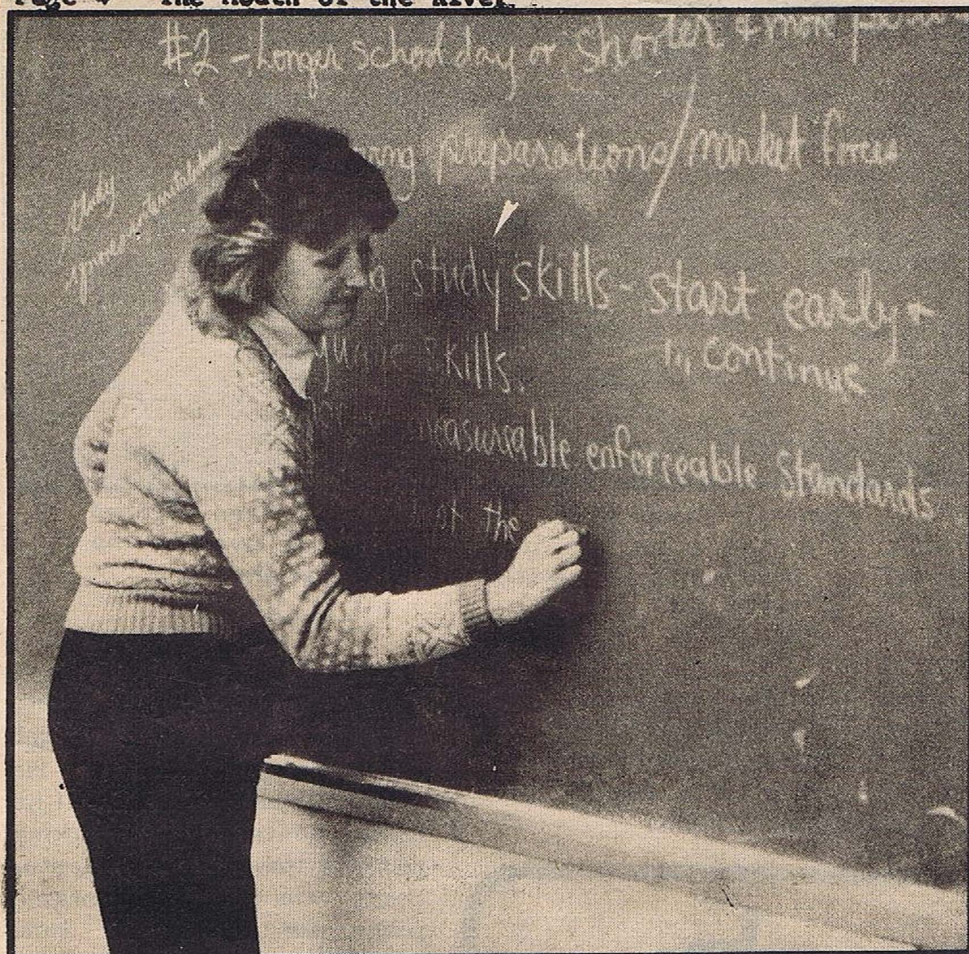 Page 4 The Mouth of the River
#2 - Longer school day or shorter & more
preparations/market forces
study
study skills - start early &
continue
skills.
measureable enforceable standards
the